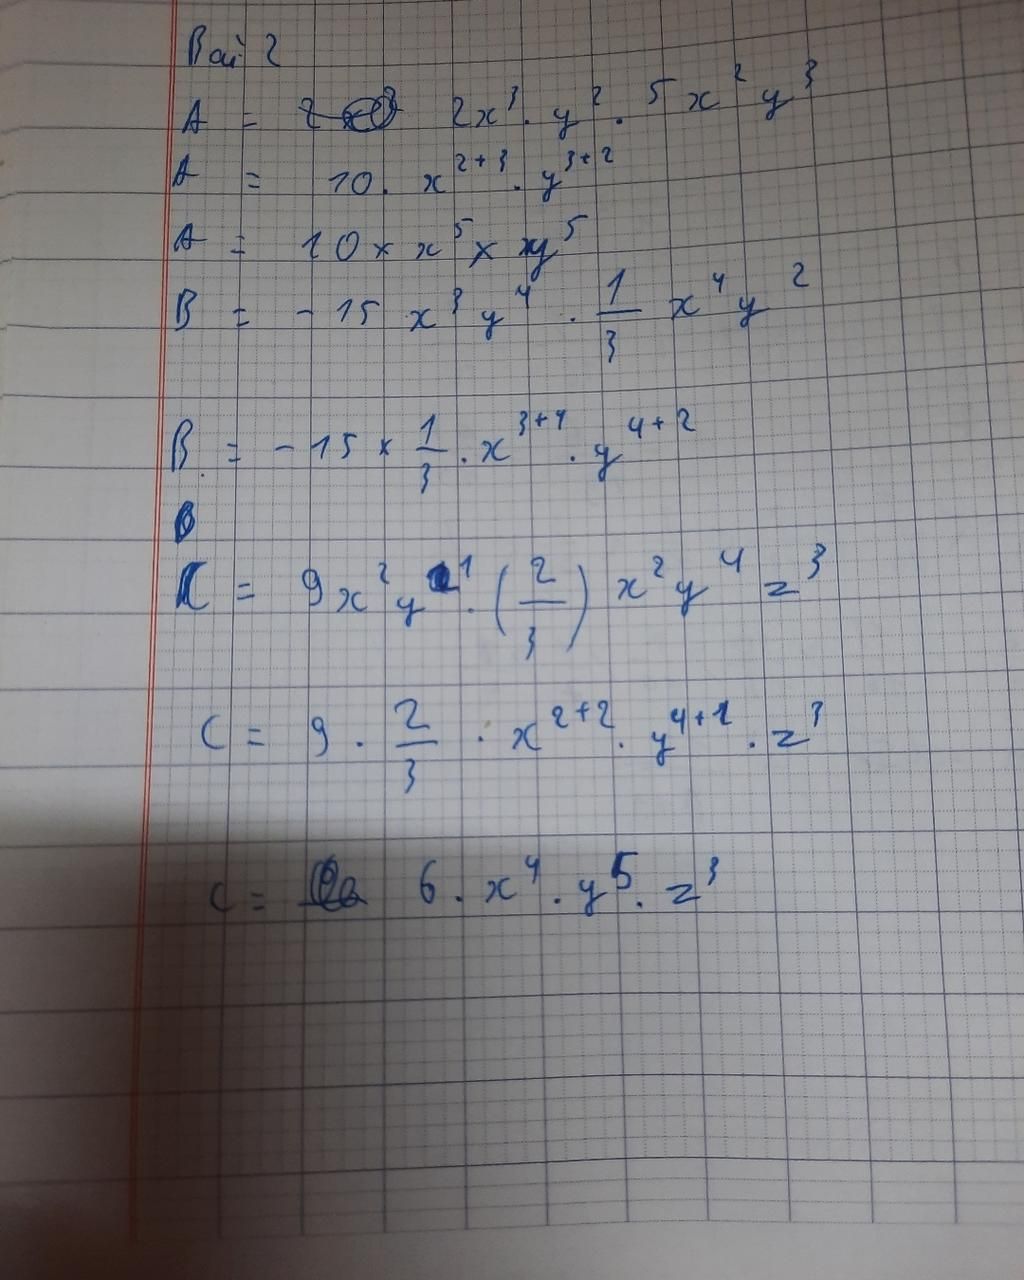 Bài 2
A = 2x³. y². 5x²y³
A = 10. x²⁺³. y³⁺²
A = 10 × x⁵ × y⁵
B = -15 x³y⁴ . 1/3 x⁴y²
B = -15 × 1/3 . x³⁺⁴ . y⁴⁺²
C = 9x²y¹. (2/3) x²y⁴z³
C = 9 . 2/3 . x²⁺² . y⁴⁺¹ . z³
C = 6 . x⁴ . y⁵ . z³